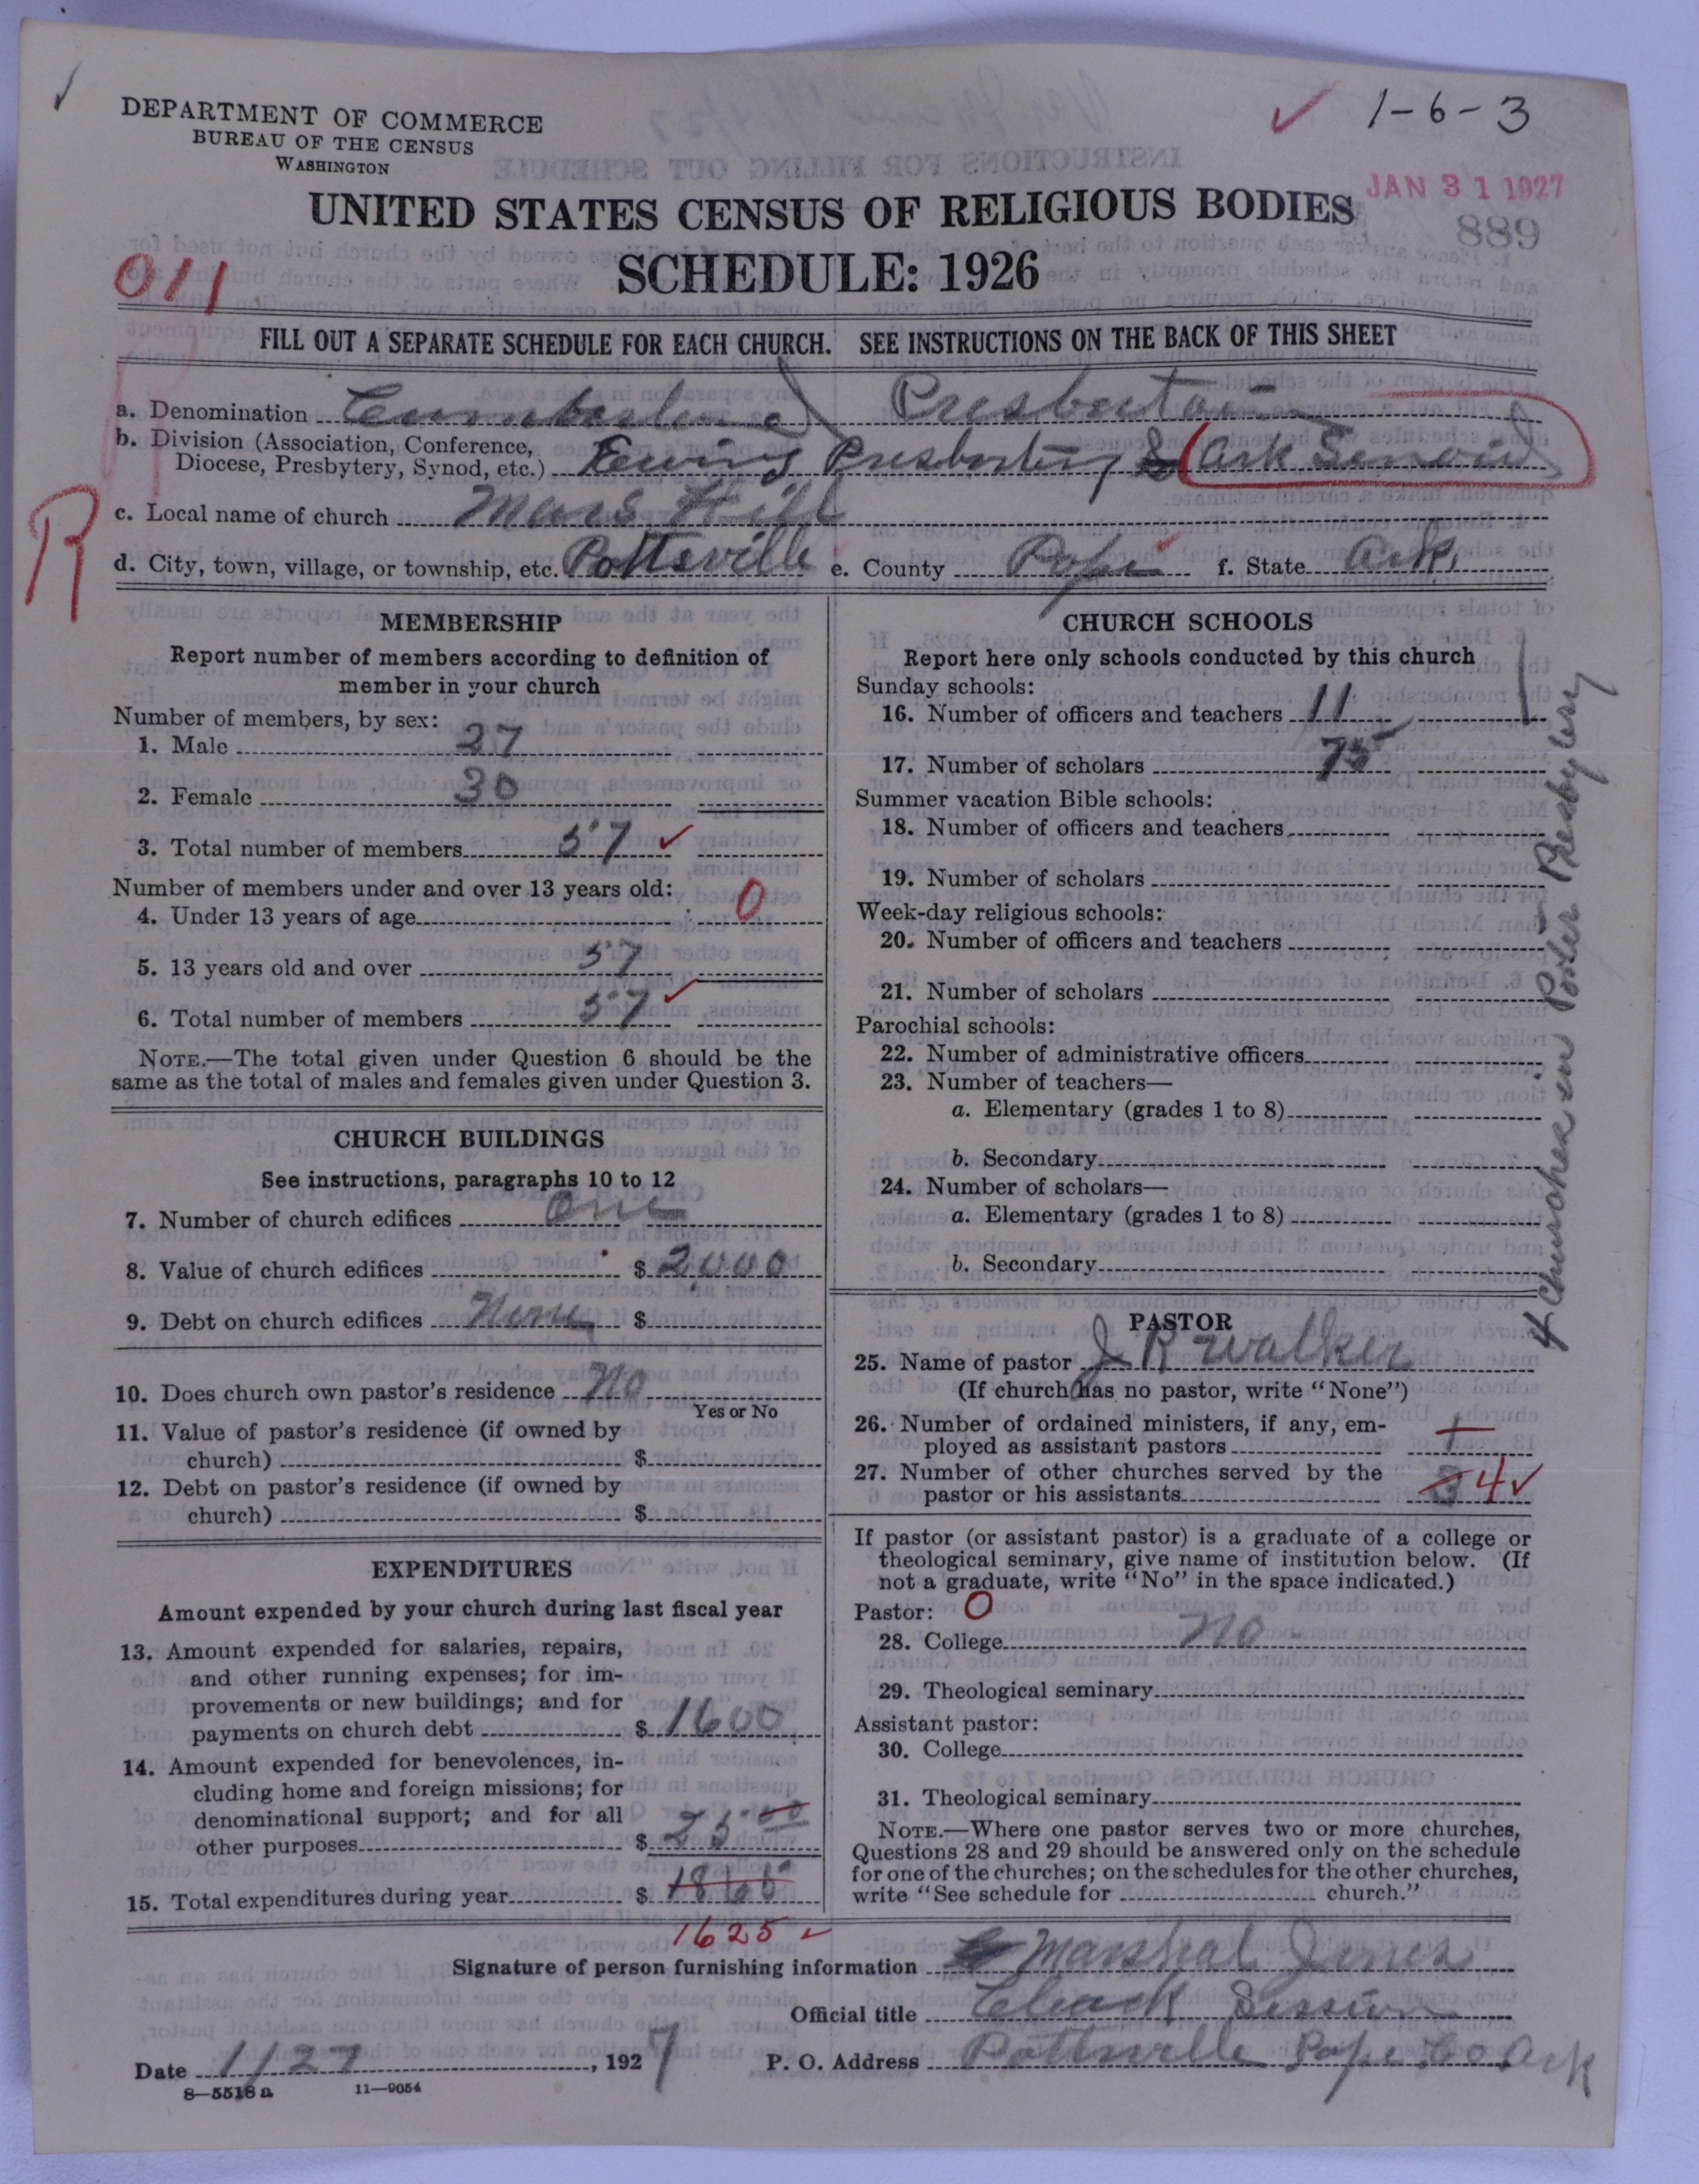 DEPARTMENT OF COMMERCE
BUREAU OF THE CENSUS
WASHINGTON
1-6-3
JAN 31 1927
889
UNITED STATES CENSUS OF RELIGIOUS BODIES
SCHEDULE: 1926
011
FILL OUT A SEPARATE SCHEDULE FOR EACH CHURCH. SEE INSTRUCTIONS ON THE BACK OF THIS SHEET
R
a. Denomination Cumberland Presbertain
b. Division (Association, Conference,
Diocese, Presbytery, Synod, etc.) Ewing Presbertery & Ark Senoid
c. Local name of church Mars Hill
d. City, town, village, or township, etc. Pottsville e. County Pope f. State Ark.
MEMBERSHIP
Report number of members according to definition of
member in your church
Number of members, by sex:
1. Male 27
2. Female 30
3. Total number of members 57
Number of members under and over 13 years old:
4. Under 13 years of age 0
5. 13 years old and over 57
6. Total number of members 57
NOTE.—The total given under Question 6 should be the
same as the total of males and females given under Question 3.
CHURCH BUILDINGS
See instructions, paragraphs 10 to 12
7. Number of church edifices One
8. Value of church edifices $ 2,000
9. Debt on church edifices None $
10. Does church own pastor's residence No
Yes or No
11. Value of pastor's residence (if owned by
church) $
12. Debt on pastor's residence (if owned by
church) $
EXPENDITURES
Amount expended by your church during last fiscal year
13. Amount expended for salaries, repairs,
and other running expenses; for im-
provements or new buildings; and for
payments on church debt $ 1600
14. Amount expended for benevolences, in-
cluding home and foreign missions; for
denominational support; and for all
other purposes $ 25.00
15. Total expenditures during year $
1625
CHURCH SCHOOLS
Report here only schools conducted by this church
Sunday schools:
16. Number of officers and teachers 11
17. Number of scholars 75
Summer vacation Bible schools:
18. Number of officers and teachers
19. Number of scholars
Week-day religious schools:
20. Number of officers and teachers
21. Number of scholars
Parochial schools:
22. Number of administrative officers
23. Number of teachers—
a. Elementary (grades 1 to 8)
b. Secondary
24. Number of scholars—
a. Elementary (grades 1 to 8)
b. Secondary
4 Churches in Porter Presbytery
PASTOR
25. Name of pastor J R Walker
(If church has no pastor, write "None")
26. Number of ordained ministers, if any, em-
ployed as assistant pastors 1
27. Number of other churches served by the
pastor or his assistants 3 4
If pastor (or assistant pastor) is a graduate of a college or
theological seminary, give name of institution below. (If
not a graduate, write "No" in the space indicated.)
Pastor: O
28. College No
29. Theological seminary
Assistant pastor:
30. College
31. Theological seminary
NOTE.—Where one pastor serves two or more churches,
Questions 28 and 29 should be answered only on the schedule
for one of the churches; on the schedules for the other churches,
write "See schedule for church."
Signature of person furnishing information Marshal Jones
Official title Cleark Session
Date 1/27, 1927 P. O. Address Pottsville Pope Co Ark
8—5518 a 11—9054